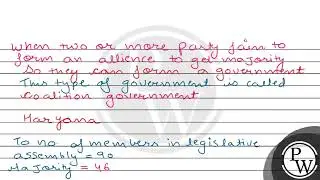 when two or more party join to
form an allience to get majority
So they can form a government
This type of government is called
coalition government
Haryana
To no of members in legislative
assembly = 90
Majority = 46
PW